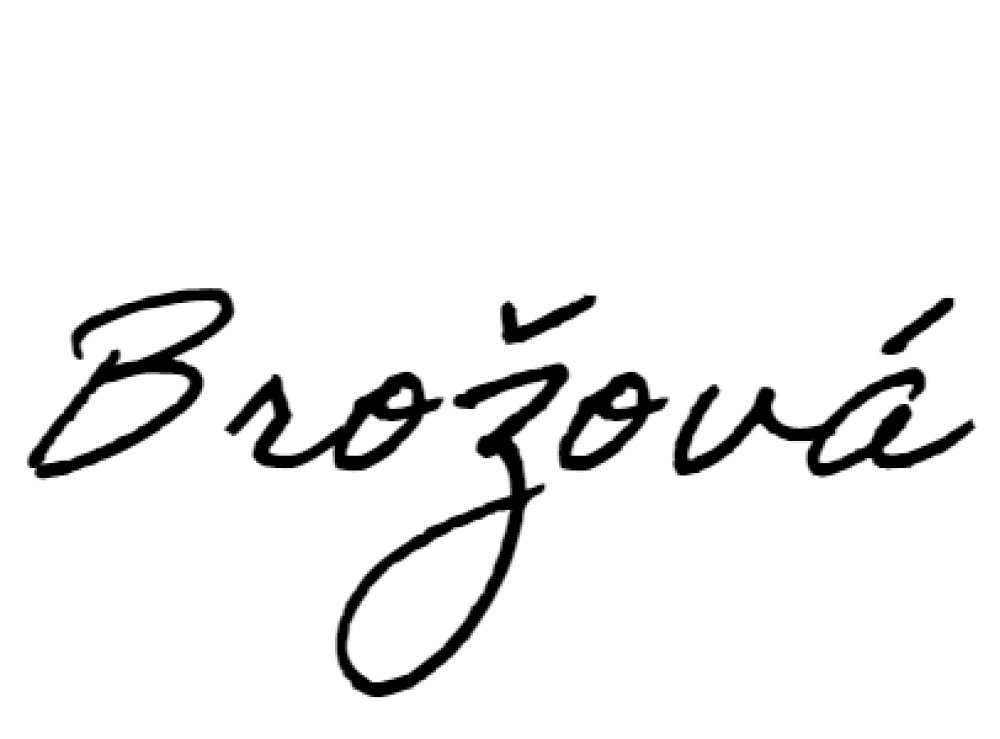 Brožová